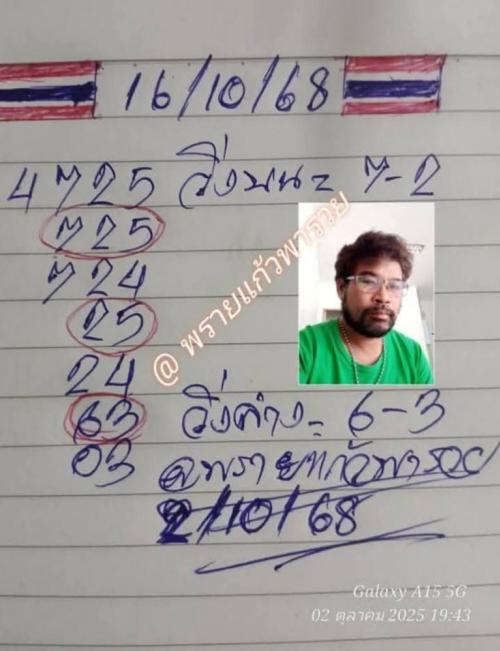 16/10/68
4725 วิ่งบน = 7-2
725
724
25
24
63 วิ่งล่าง = 6-3
03 @พรายแก้วพารวย
2/10/68
@ พรายแก้วพารวย
Galaxy A15 5G
02 ตุลาคม 2025 19:43